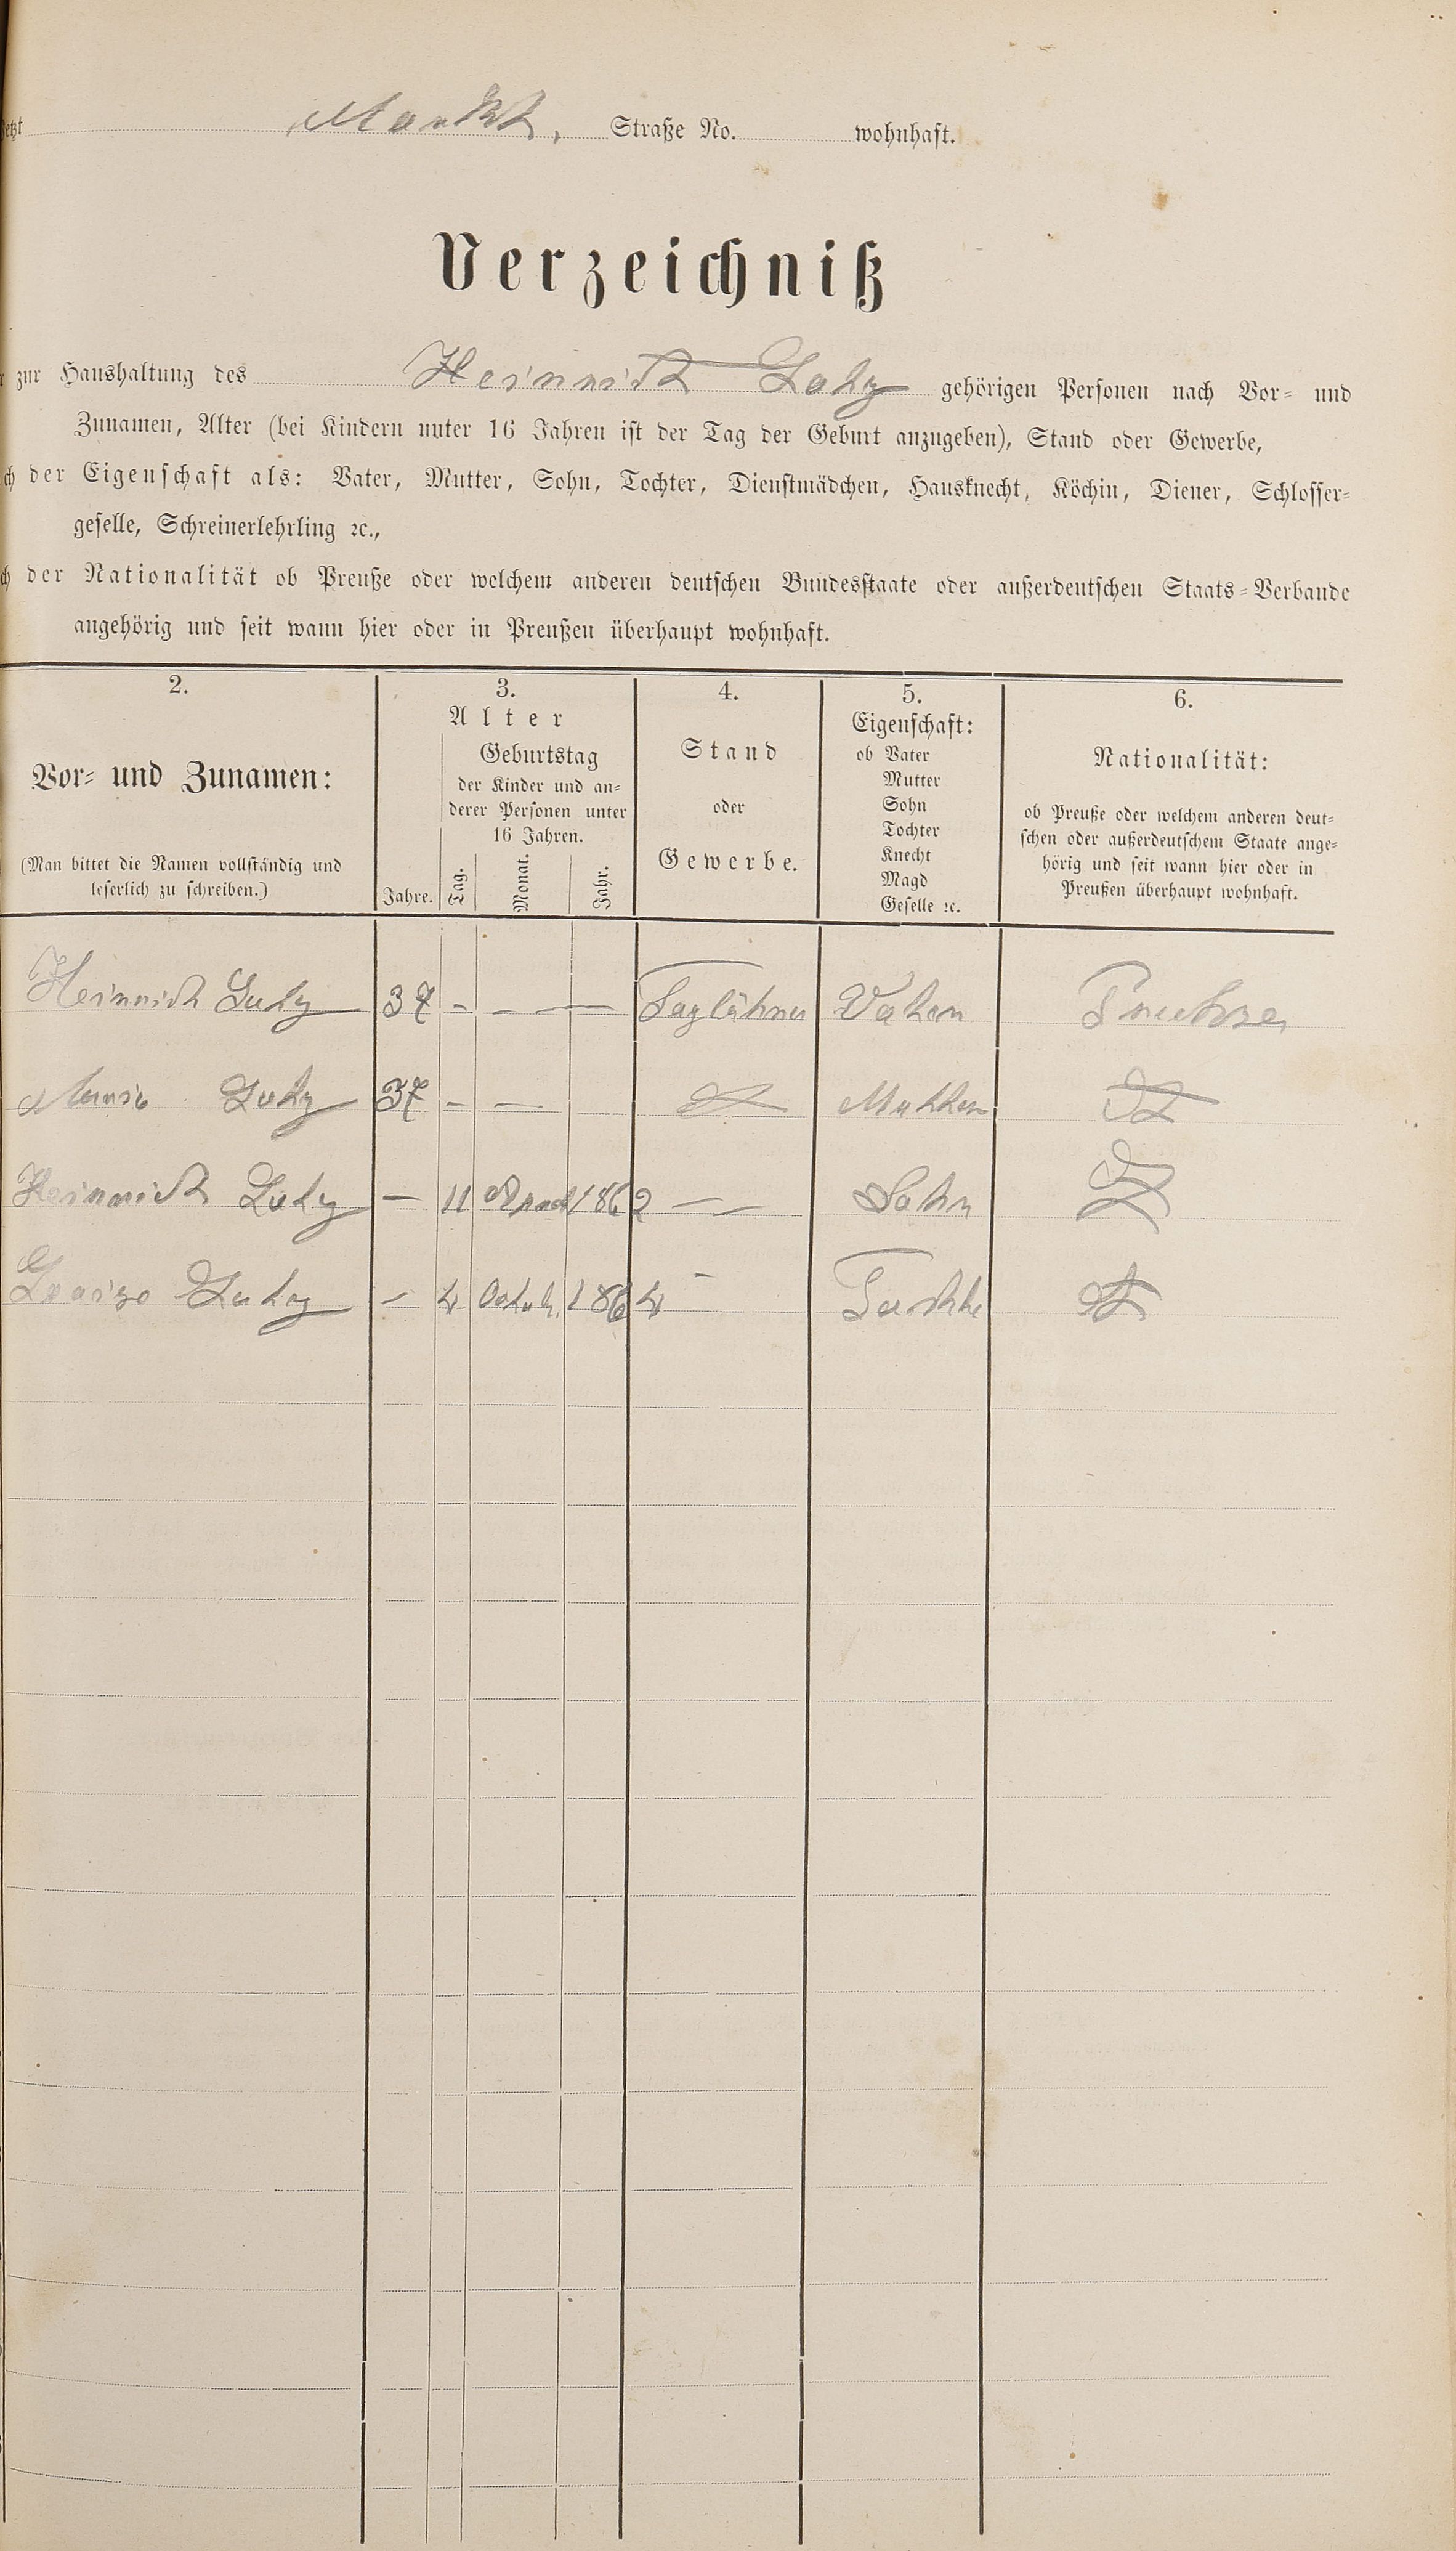 jetzt Markt, Straße No. wohnhaft.
Verzeichniß
zur Haushaltung des Heinrich Luty gehörigen Personen nach Vor- und
Zunamen, Alter (bei Kindern unter 16 Jahren ist der Tag der Geburt anzugeben), Stand oder Gewerbe,
der Eigenschaft als: Vater, Mutter, Sohn, Tochter, Dienstmädchen, Hausknecht, Köchin, Diener, Schlosser-
geselle, Schreinerlehrling ꝛc.,
der Nationalität ob Preuße oder welchem anderen deutschen Bundesstaate oder außerdeutschen Staats-Verbande
angehörig und seit wann hier oder in Preußen überhaupt wohnhaft.
2.
Vor- und Zunamen:
(Man bittet die Namen vollständig und
leserlich zu schreiben.)
3.
Alter
Geburtstag
der Kinder und an-
derer Personen unter
16 Jahren.
Jahre. Tag. Monat. Jahr.
4.
Stand
oder
Gewerbe.
5.
Eigenschaft:
ob Vater
Mutter
Sohn
Tochter
Knecht
Magd
Geselle ꝛc.
6.
Nationalität:
ob Preuße oder welchem anderen deut-
schen oder außerdeutschem Staate ange-
hörig und seit wann hier oder in
Preußen überhaupt wohnhaft.
Heinrich Luty 37 - - - Taglöhner Vater
Maria Luty 37 - - Mutter
Heinrich Luty - 11 1862 - Sohn
Luty - 4 1864 -